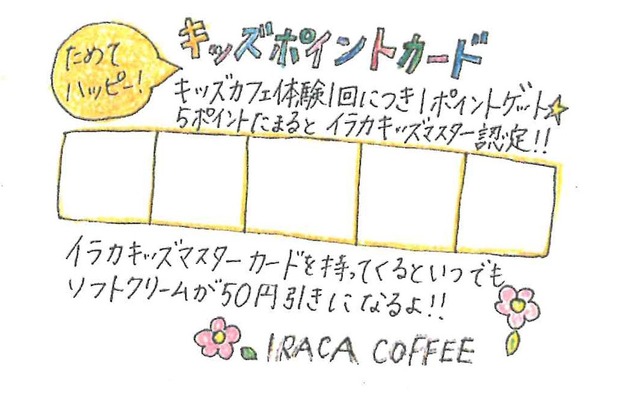 ためて
ハッピー!
キッズポイントカード
キッズカフェ体験1回につき1ポイントゲット☆
5ポイントたまると イラカキッズマスター認定!!
イラカキッズマスターカードを持ってくるといつでも
ソフトクリームが50円引きになるよ!!
IRACA COFFEE